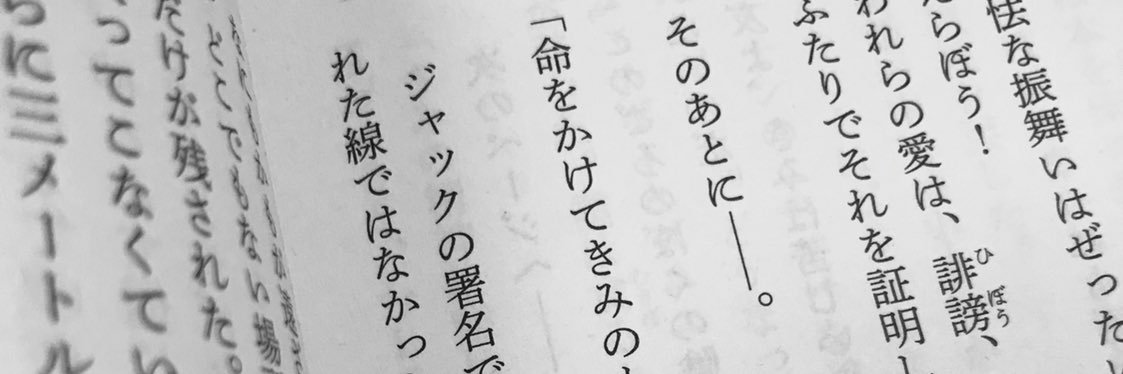 怯な振舞いはぜった
らぼう！
われらの愛は、誹謗、
ひぼう
ふたりでそれを証明
そのあとに――。
「命をかけてきみの
ジャックの署名で
れた線ではなかっ
とことでもない場
だけが残された。
ってこなくてい
らに三メートル